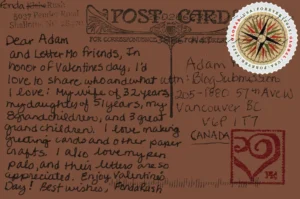 POST CARD
Dear Adam
and Letter Mo friends, In
honor of Valentine's day, I'd
love to share who and what
I love: My wife of 32 years,
my daughter of 51 years, my
8 grandchildren, and 3 great
grandchildren. I love making
greeting cards and other paper
crafts. I also love my pen
pals, and their letters are so
appreciated. Enjoy Valentine's
Day! Best wishes,
Adam
: Blog Submissions
57th Ave W
Vancouver BC
CANADA